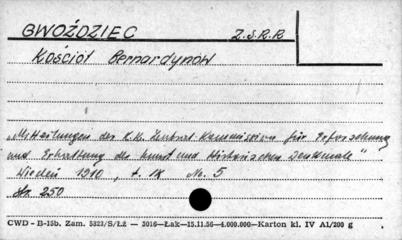 GWOŹDZIEC Z.S.R.R
Kościół Bernardynów
„Mitteilungen der K.K. Zentral Kommission für Erforschung
und Erhaltung der Kunst und Historischen Denkmale"
Wiedeń 1910, t. IX No. 5
str. 250
CWD - B-15b. Zam. 5323/S/Łż — 5016—Łak—15.11.56—4.000.000—Karton kl. IV A1/200 g